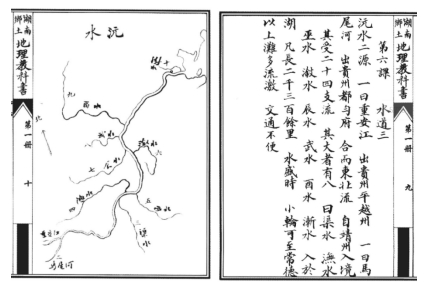 湖南鄉土地理教科書
第一冊
九
第六課 水道三
沅水二源 一曰重安江 出貴州平越州 一曰馬
尾河 出貴州都勻府 合而東北流 自靖州入境
其受二十四支流 其大者有八 曰渠水 㵲水
巫水 漵水 辰水 武水 酉水 漸水 入於
湖 凡長二千三百餘里 水盛時 小輪可至常德
以上灘多流激 交通不便
湖南鄉土地理教科書
第一冊
十
沅水
十
九
酉水
武水
漵水
六
七
辰水
五
巫水
四
三
渠水
二
馬尾河